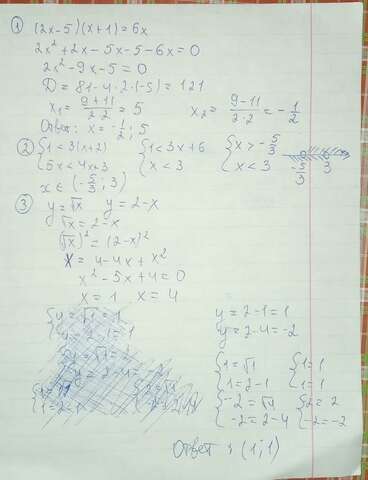 1 (2x-5)(x+1)=6x
2x²+2x-5x-5-6x=0
2x²-9x-5=0
D=81-4·2·(-5)=121
x₁=(9+11)/(2·2)=5 x₂=(9-11)/(2·2)=-1/2
Ответ: x=-1/2; 5
2 {1<3(x+2) {1<3x+6 {x>-5/3
{5x<4x+3 {x<3 {x<3 -5/3 3
x∈(-5/3; 3)
3 y=√x y=2-x
√x=2-x
(√x)²=(2-x)²
x=4-4x+x²
x²-5x+4=0
x=1 x=4
y=2-1=1
y=2-4=-2
{1=√1 {1=1
{1=2-1 {1=1
{-2=√4 {2=2
{-2=2-4 {-2=-2
Ответ: (1;1)